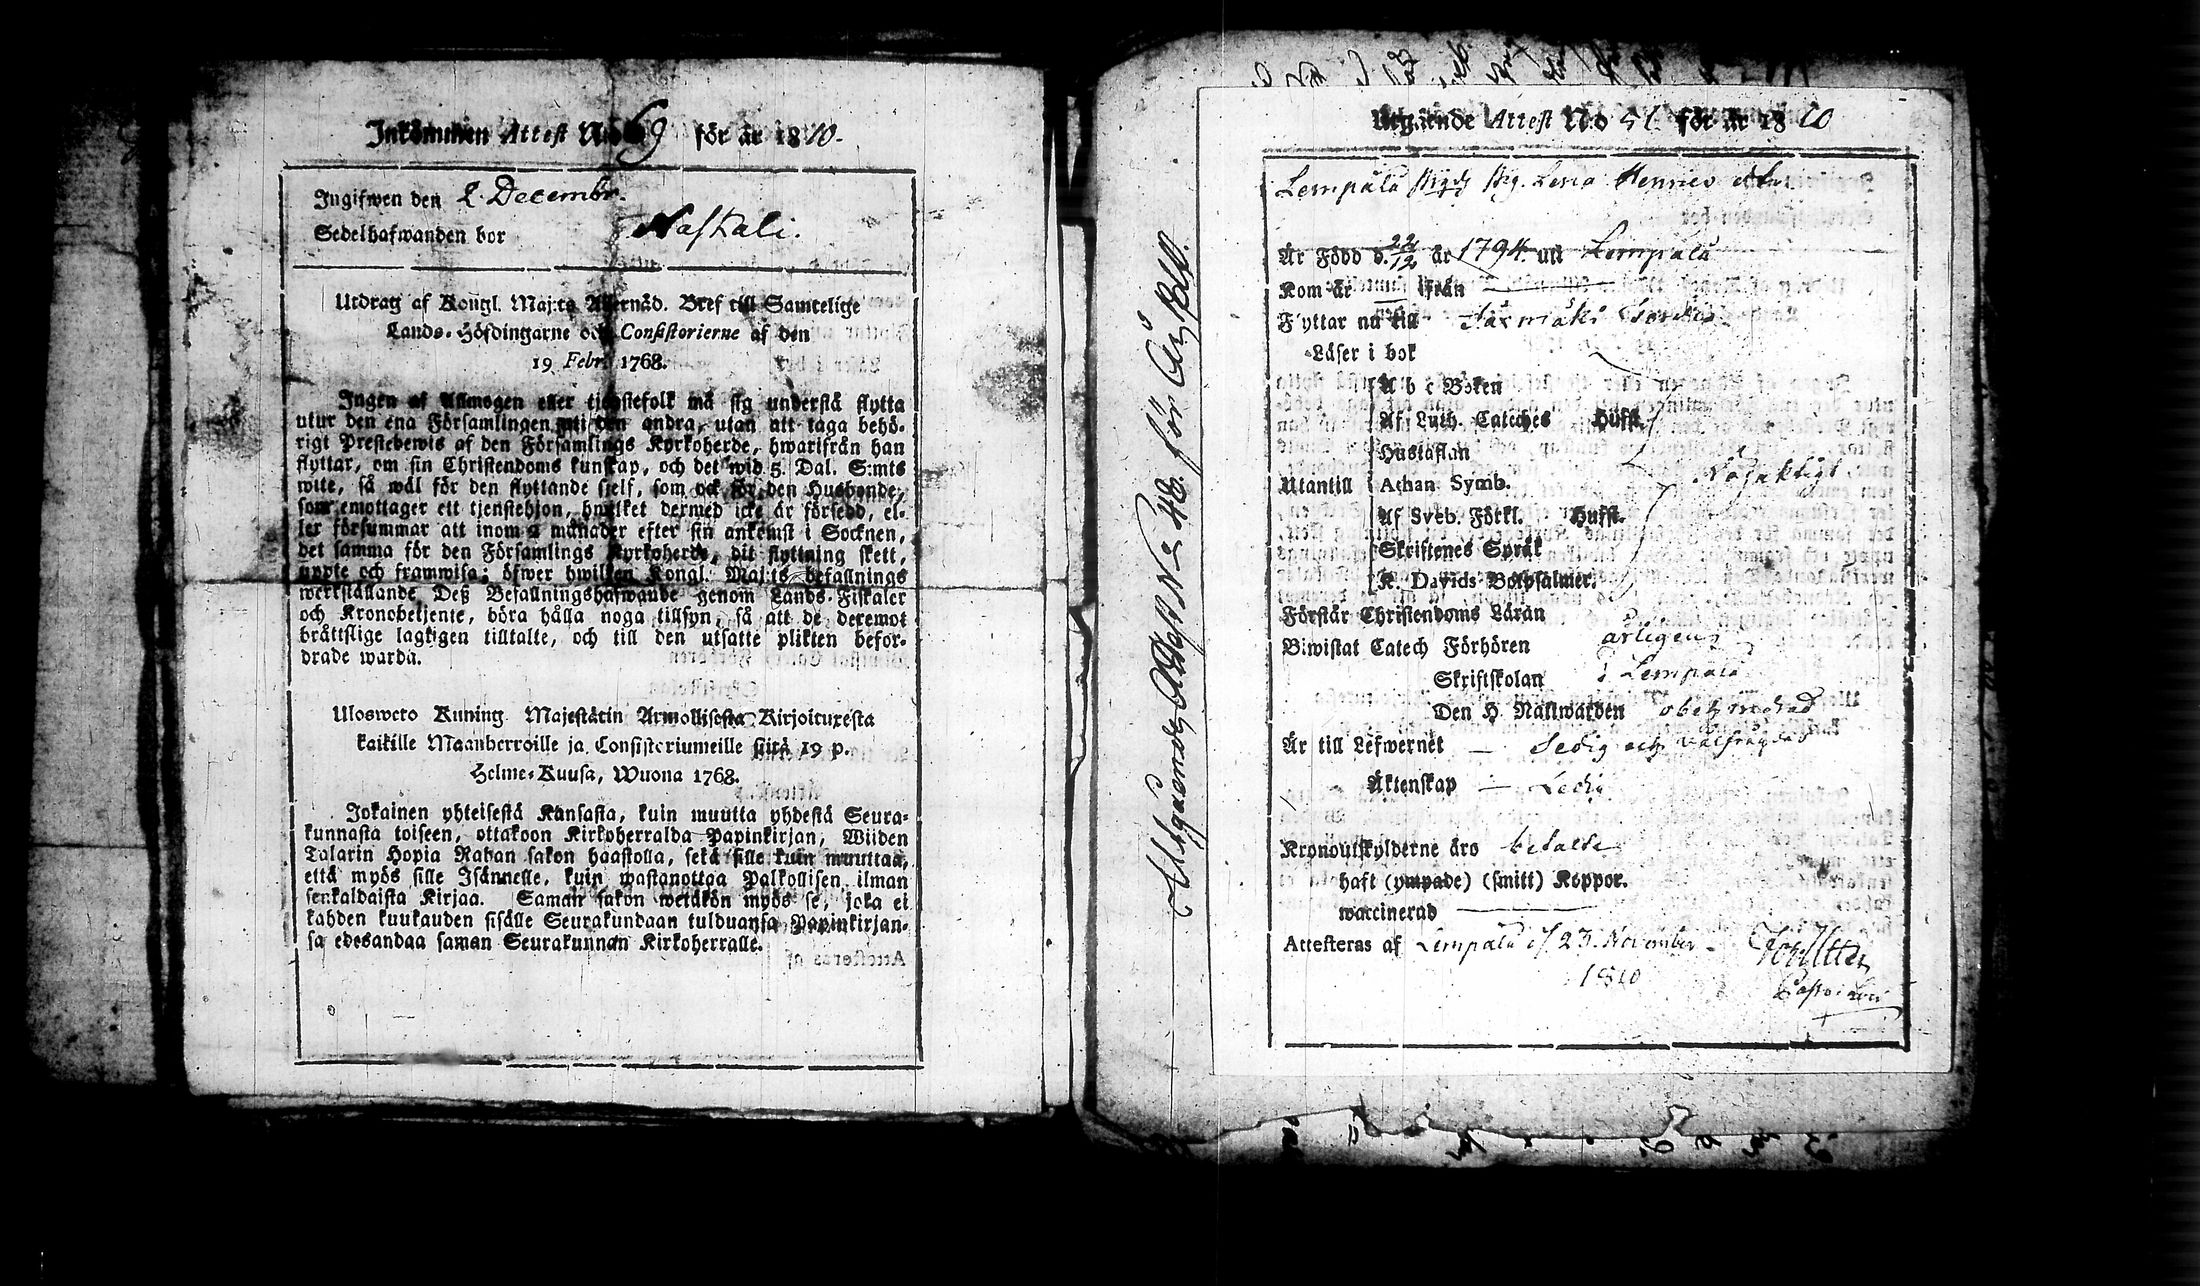 Inkommen Attest N:o 69 för år 1810.
Ingifwen den 2 Decembr.
Sedelhafwanden bor Naskali.
Utdrag af Kongl. Maj:ts Allernåd. Bref till Samtelige
Lands-Höfdingarne och Consistorierne af den
19 Febr. 1768.
Ingen af Allmogen eller tjenstefolk må sig understå flytta
utur den ena Församlingen uti den andra, utan att taga behö-
rigt Prestebewis af den Församlings Kyrkoherde, hwarifrån han
flyttar, om sin Christendoms kunskap, och det wid 5 Dal. S:mts
wite, så wäl för den flyttande sjelf, som ock för den Husbonde,
som emottager ett tjenstehjon, hwilket dermed icke är försedd, el-
ler försummar att inom 2 månader efter sin ankomst i Socknen,
det samma för den Församlings Kyrkoherde, dit flyttning skett,
uppte och framwisa; öfwer hwilken Kongl. Maj:ts befallnings
werkställande Deß Befallningshafwande genom Lands-Fiskaler
och Kronobetjente, böra hålla noga tillsyn, så att de deremot
bråttslige lagligen tilltalte, och till den utsatte plikten befor-
drade warda.
Ulosweto Kuning. Majestätin Armollisesta Kirjoituxesta
kaikille Maanherroille ja Consistoriumeille siitä 19 p.
Helme-Kuusa, Wuona 1768.
Jokainen yhteisestä Kansasta, kuin muutta yhdestä Seura-
kunnasta toiseen, ottakoon Kirkoherralda Papinkirjan, Wiiden
Talarin Hopia Rahan sakon haastolla, sekä sille kuin muuttaa,
että myös sille Isännelle, kuin wastanottaa Palkollisen ilman
senkaldaista Kirjaa. Saman sakon wetäkön myös se, joka ei
kahden kuukauden sisälle Seurakundaan tulduansa Papinkirjan-
sa edesandaa saman Seurakunnan Kirkoherralle.
Utgående Attest N:o 48. för År 1810.
Utgående Attest N:o 51 för år 1810
Lempälä Pig. Lena Henrics
Är Född d. 22/12 år 1794 uti Lempälä
Kom år ifrån
Flyttar nu till
Läser i bok
A b c Boken
Af Luth. Cateches Hufst.
Hustaflan
Utantill Athan Symb.
Af Sveb. Förkl. Hufst.
Skriftenes Språk
K. Davids Botpsalmer.
Förstår Christendoms Läran
Biwistat Catech Förhören årligen
Skriftskolan i Lempälä
Den H. Nattwarden obehindrad
Är till Lefwernet Sedig och välfrägdad
Äktenskap Ledig
Kronoutskylderne äro betalte
haft (ympade) (smitt) Koppor.
waccinerad
Attesteras af Lempälä d 23 November
1810